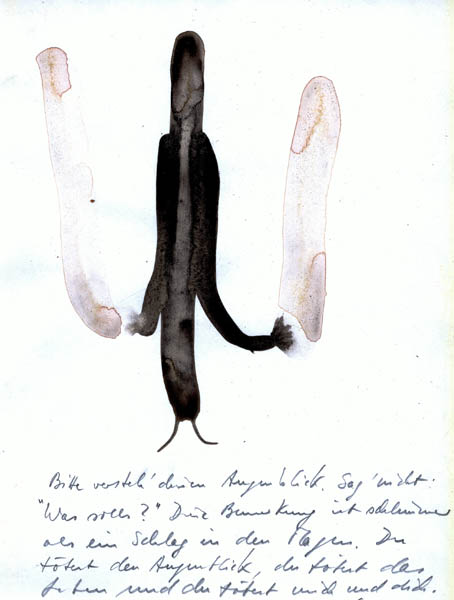 Bitte versteh' deinen Augenblick. Sag' nicht:
"Was solls?" Deine Bemerkung ist schlimmer
als ein Schlag in den Magen. Du
tötest den Augenblick, du tötest das
Leben und du tötest mich und dich.